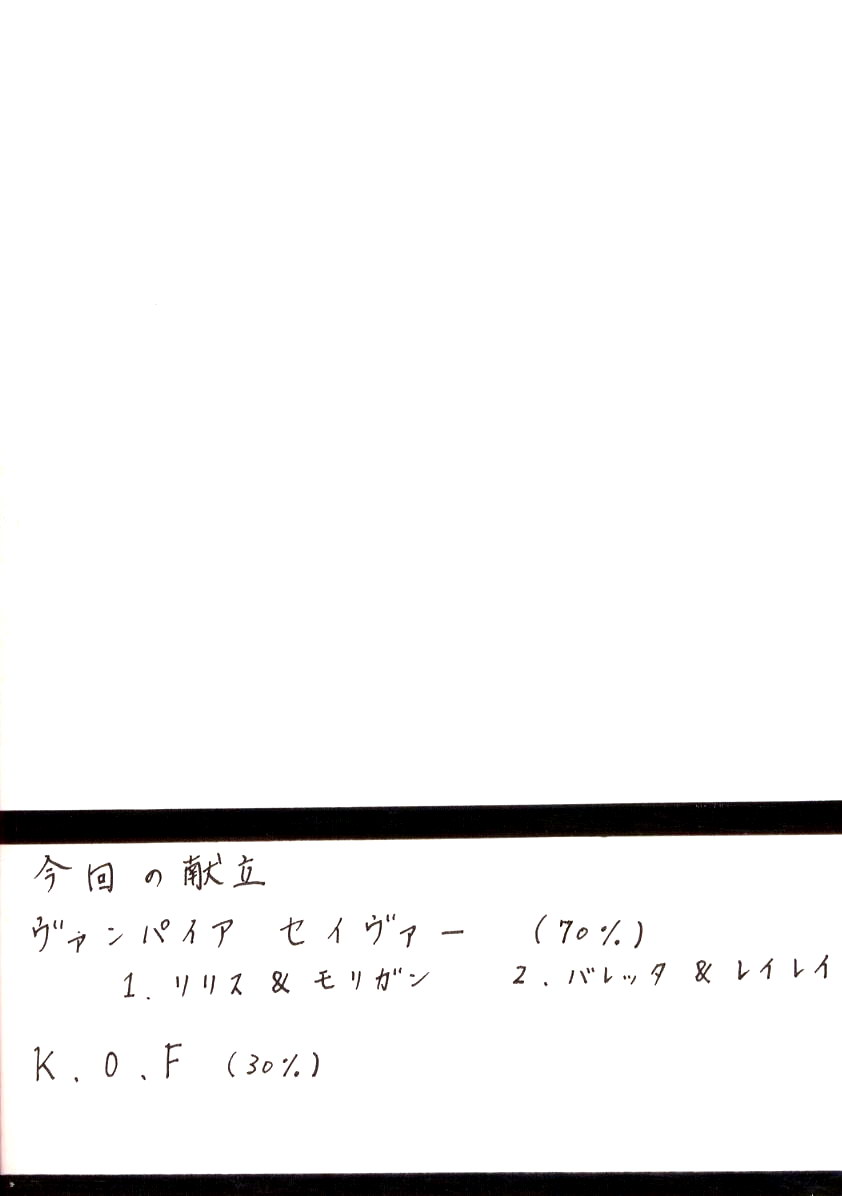 今回の献立
ヴァンパイア セイヴァー (70%)
1. リリス & モリガン 2. バレッタ & レイレイ
K.O.F (30%)